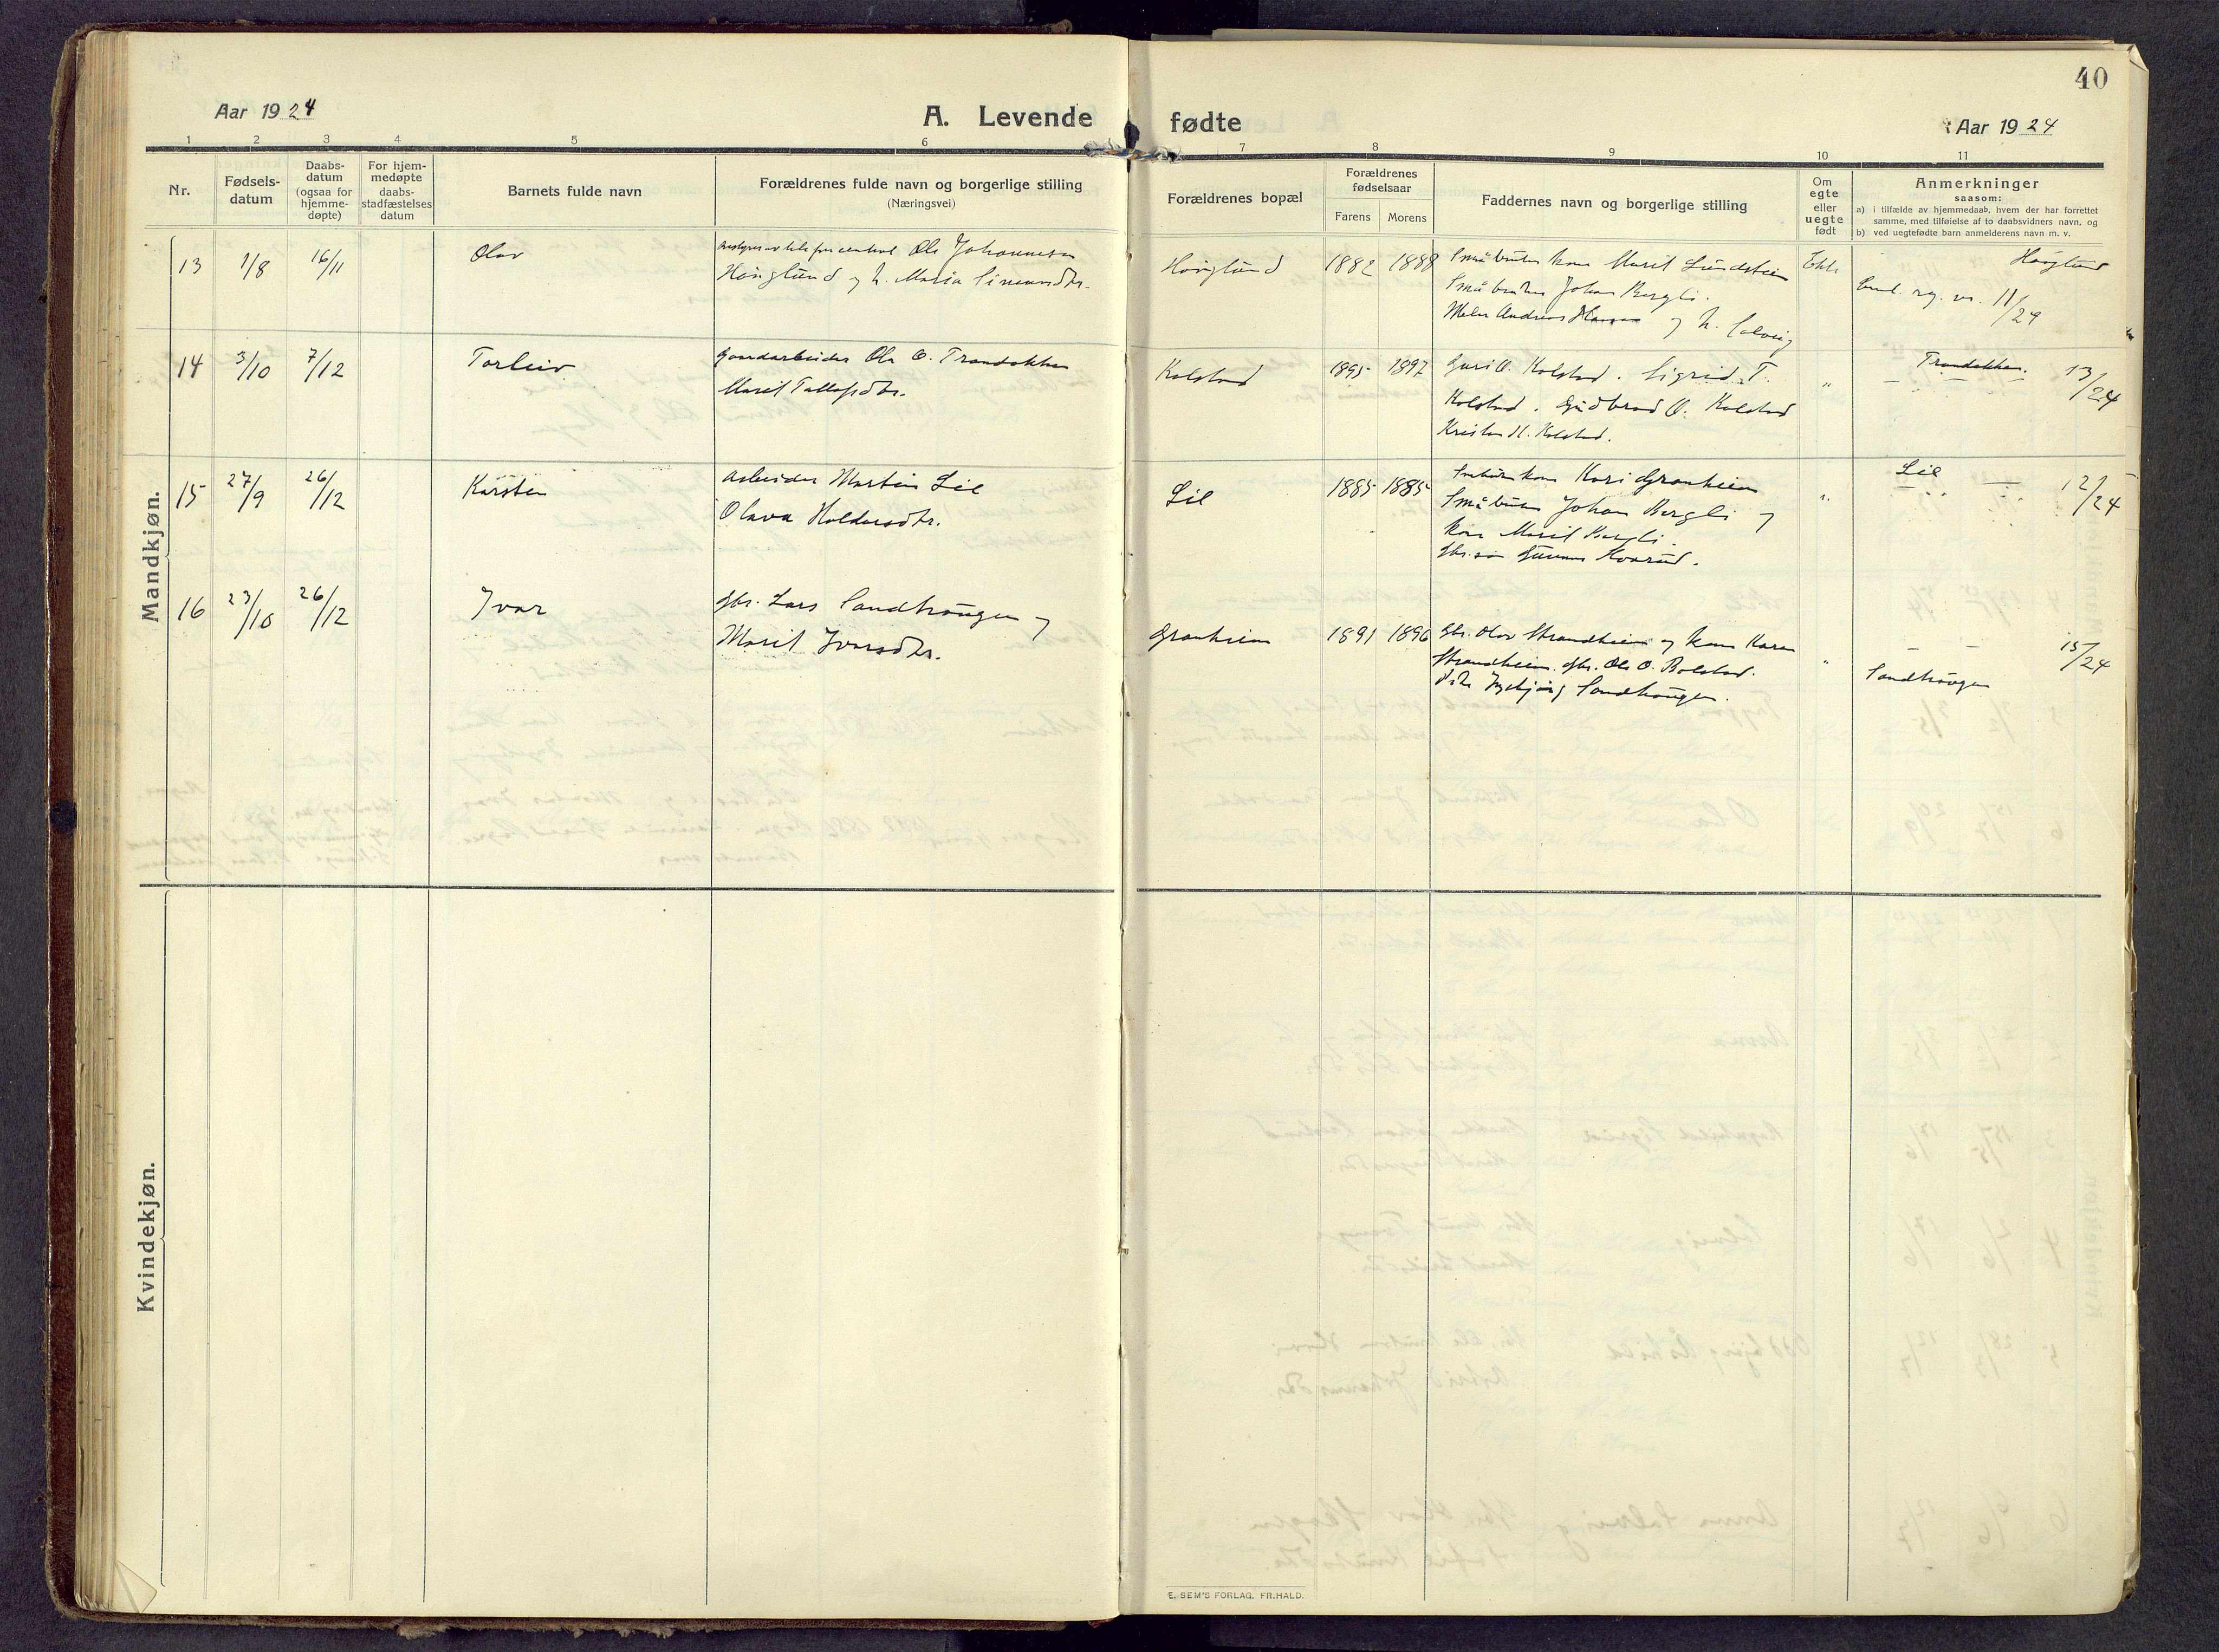 40
Aar 1924
A. Levende fødte
Aar 1924
1 2 3 4 5 6 7 8 9 10 11
Nr.
Fødsels-
datum
Daabs-
datum
(ogsaa for
hjemme-
døpte)
For hjem-
medøpte
daabs-
stadfæstelses
datum
Barnets fulde navn
Forældrenes fulde navn og borgerlige stilling
(Næringsvei)
Forældrenes bopæl
Forældrenes
fødselsaar
Farens Morens
Faddernes navn og borgerlige stilling
Om
egte
eller
uegte
født
Anmerkninger
saasom:
a) i tilfælde av hjemmedaab, hvem der har forrettet
samme, med tilføielse af to daabsvidners navn, og
b) ved uegtefødte barn anmelderens navn m. v.
Mandkjøn.
13 1/8 16/11 Olav
Ole Johannesen
Høiglund og h. Maria Simensdtr.
Høiglund 1882 1888
Småbruker kone Marit Lundstein
Småbruker Johan Bergli.
Maler Andreas Hansen og h. Solveig
Ekte
Høiglund
reg. nr. 11/24
14 3/10 7/12 Torleiv
Gaardarbeider Ole O. Trandokken
Marit Tollefsdtr.
Kolstad 1895 1897
Guri O. Kolstad. Sigrid T.
Kolstad. Gudbrand O. Kolstad
Kristen H. Kolstad.
"
Trandokken. 13/24
15 27/9 26/12 Karsten
Arbeider Martin Lie
Olava Haldorsdtr.
Lie 1885 1885
kone Kari Granheim
Småbruker Johan Bergli og
kone Marit Bergli.
Gunnar Kvarud.
"
Lie 12/24
16 23/10 26/12 Ivar
Gbr. Lars Sandhaugen og
Marit Ivarsdtr.
Granheim 1891 1896
Gbr. Olav Strandheim og kone Karen
Strandheim. Gbr. Ole O. Bolstad.
Pike Ingebjørg Sandhaugen.
"
15/24
Sandhaugen
Kvindekjøn.
E. SEM'S FORLAG, FR.HALD.